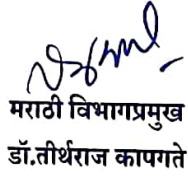 मराठी विभागप्रमुख
डॉ.तीर्थराज कापगते